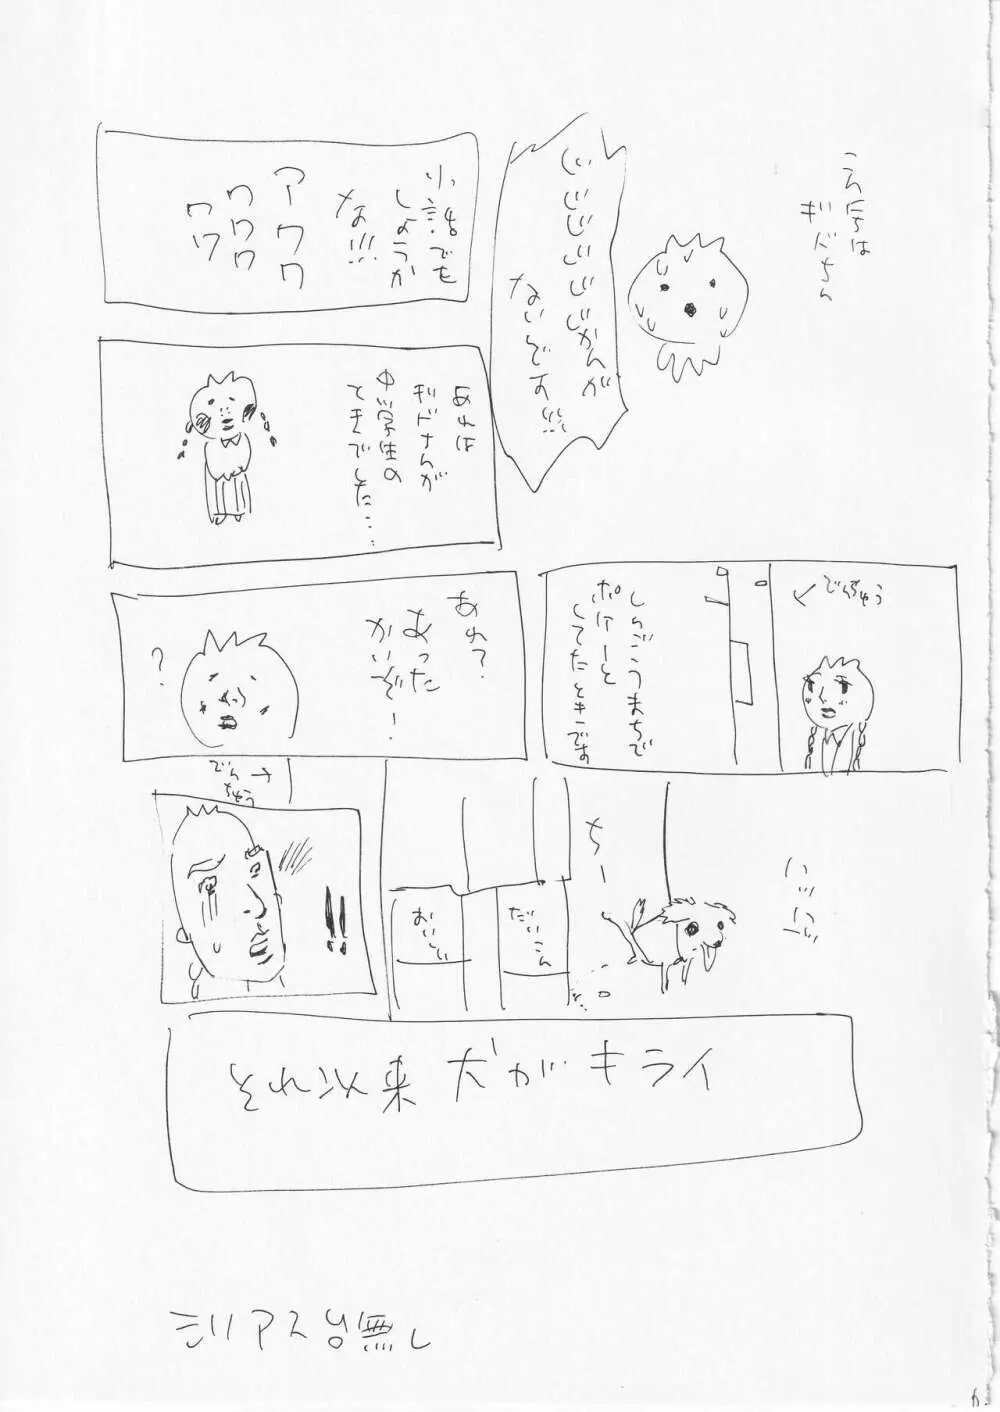 こんちは
ギドちん
じじじじじじじかんが
ないんです!!!
小話でも
しようか
な!!!
アーワワ
ワワワ
ワワ
あれは
ギドさんが
中学生の
ときでした……
でんちゅう
しんごうまちで
ポけーと
してたときです
あれ?
あったかいぞ!
?
ハッハッ
ちー
だいこん
おいしい
でんちゅう
!!
それ以来犬がキライ
シリアス台無し